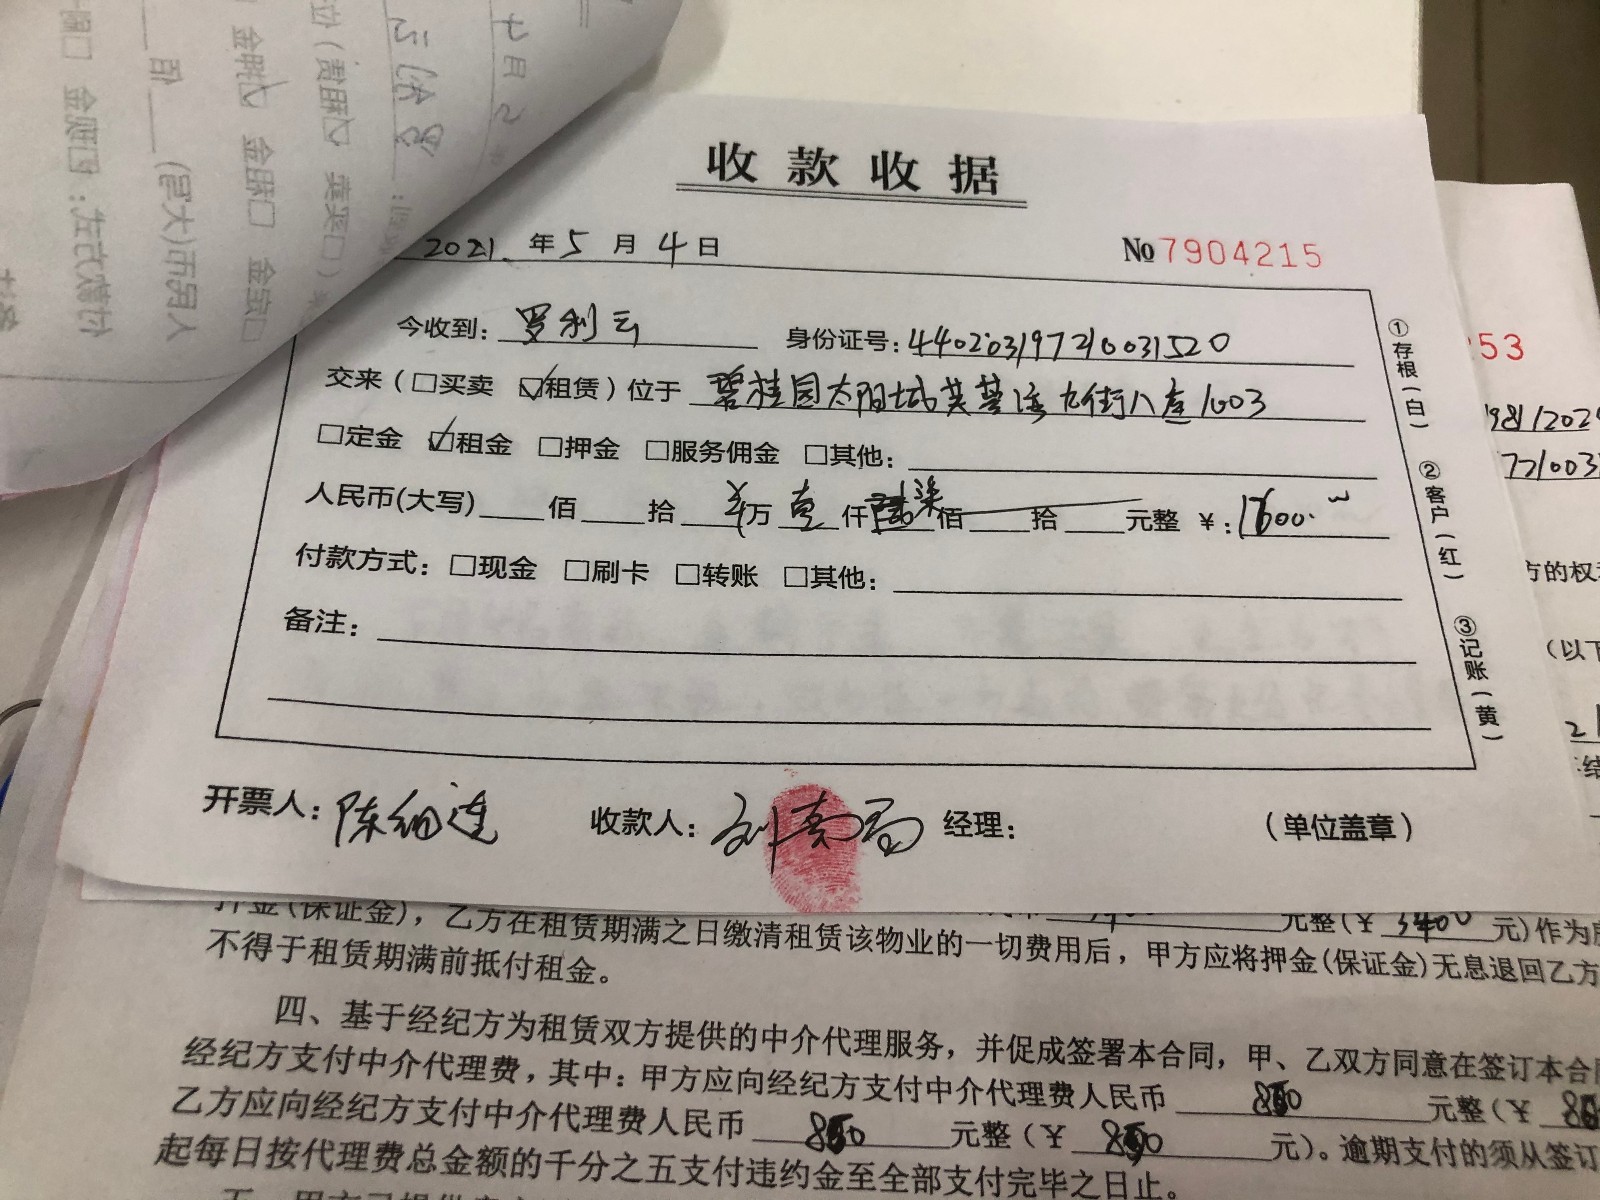 收款收据
2021 年 5 月 4 日 № 7904215
今收到： 罗利云 身份证号：440203197210031520
交来（□买卖 ☑租赁）位于 碧桂园太阳城芙蓉 九街八座1003
□定金 ☑租金 □押金 □服务佣金 □其他：
人民币(大写) 佰 拾 万 壹 仟 柒 佰 拾 元整 ¥：
付款方式：□现金 □刷卡 □转账 □其他：
备注：
①存根（白） ②客户（红） ③记账（黄）
开票人： 收款人： 经理： （单位盖章）
53
1981/202
721003
方的权
（以下
押金(保证金)，乙方在租赁期满之日缴清租赁该物业的一切费用后，甲方应将押金(保证金)无息退回乙方
元整(¥ 3400 元)作为
不得于租赁期满前抵付租金。
四、基于经纪方为租赁双方提供的中介代理服务，并促成签署本合同，甲、乙双方同意在签订本合同
经纪方支付中介代理费，其中：甲方应向经纪方支付中介代理费人民币 850 元整(¥ 850
乙方应向经纪方支付中介代理费人民币 850 元整(¥ 850 元)。逾期支付的须从签订
起每日按代理费总金额的千分之五支付违约金至全部支付完毕之日止。